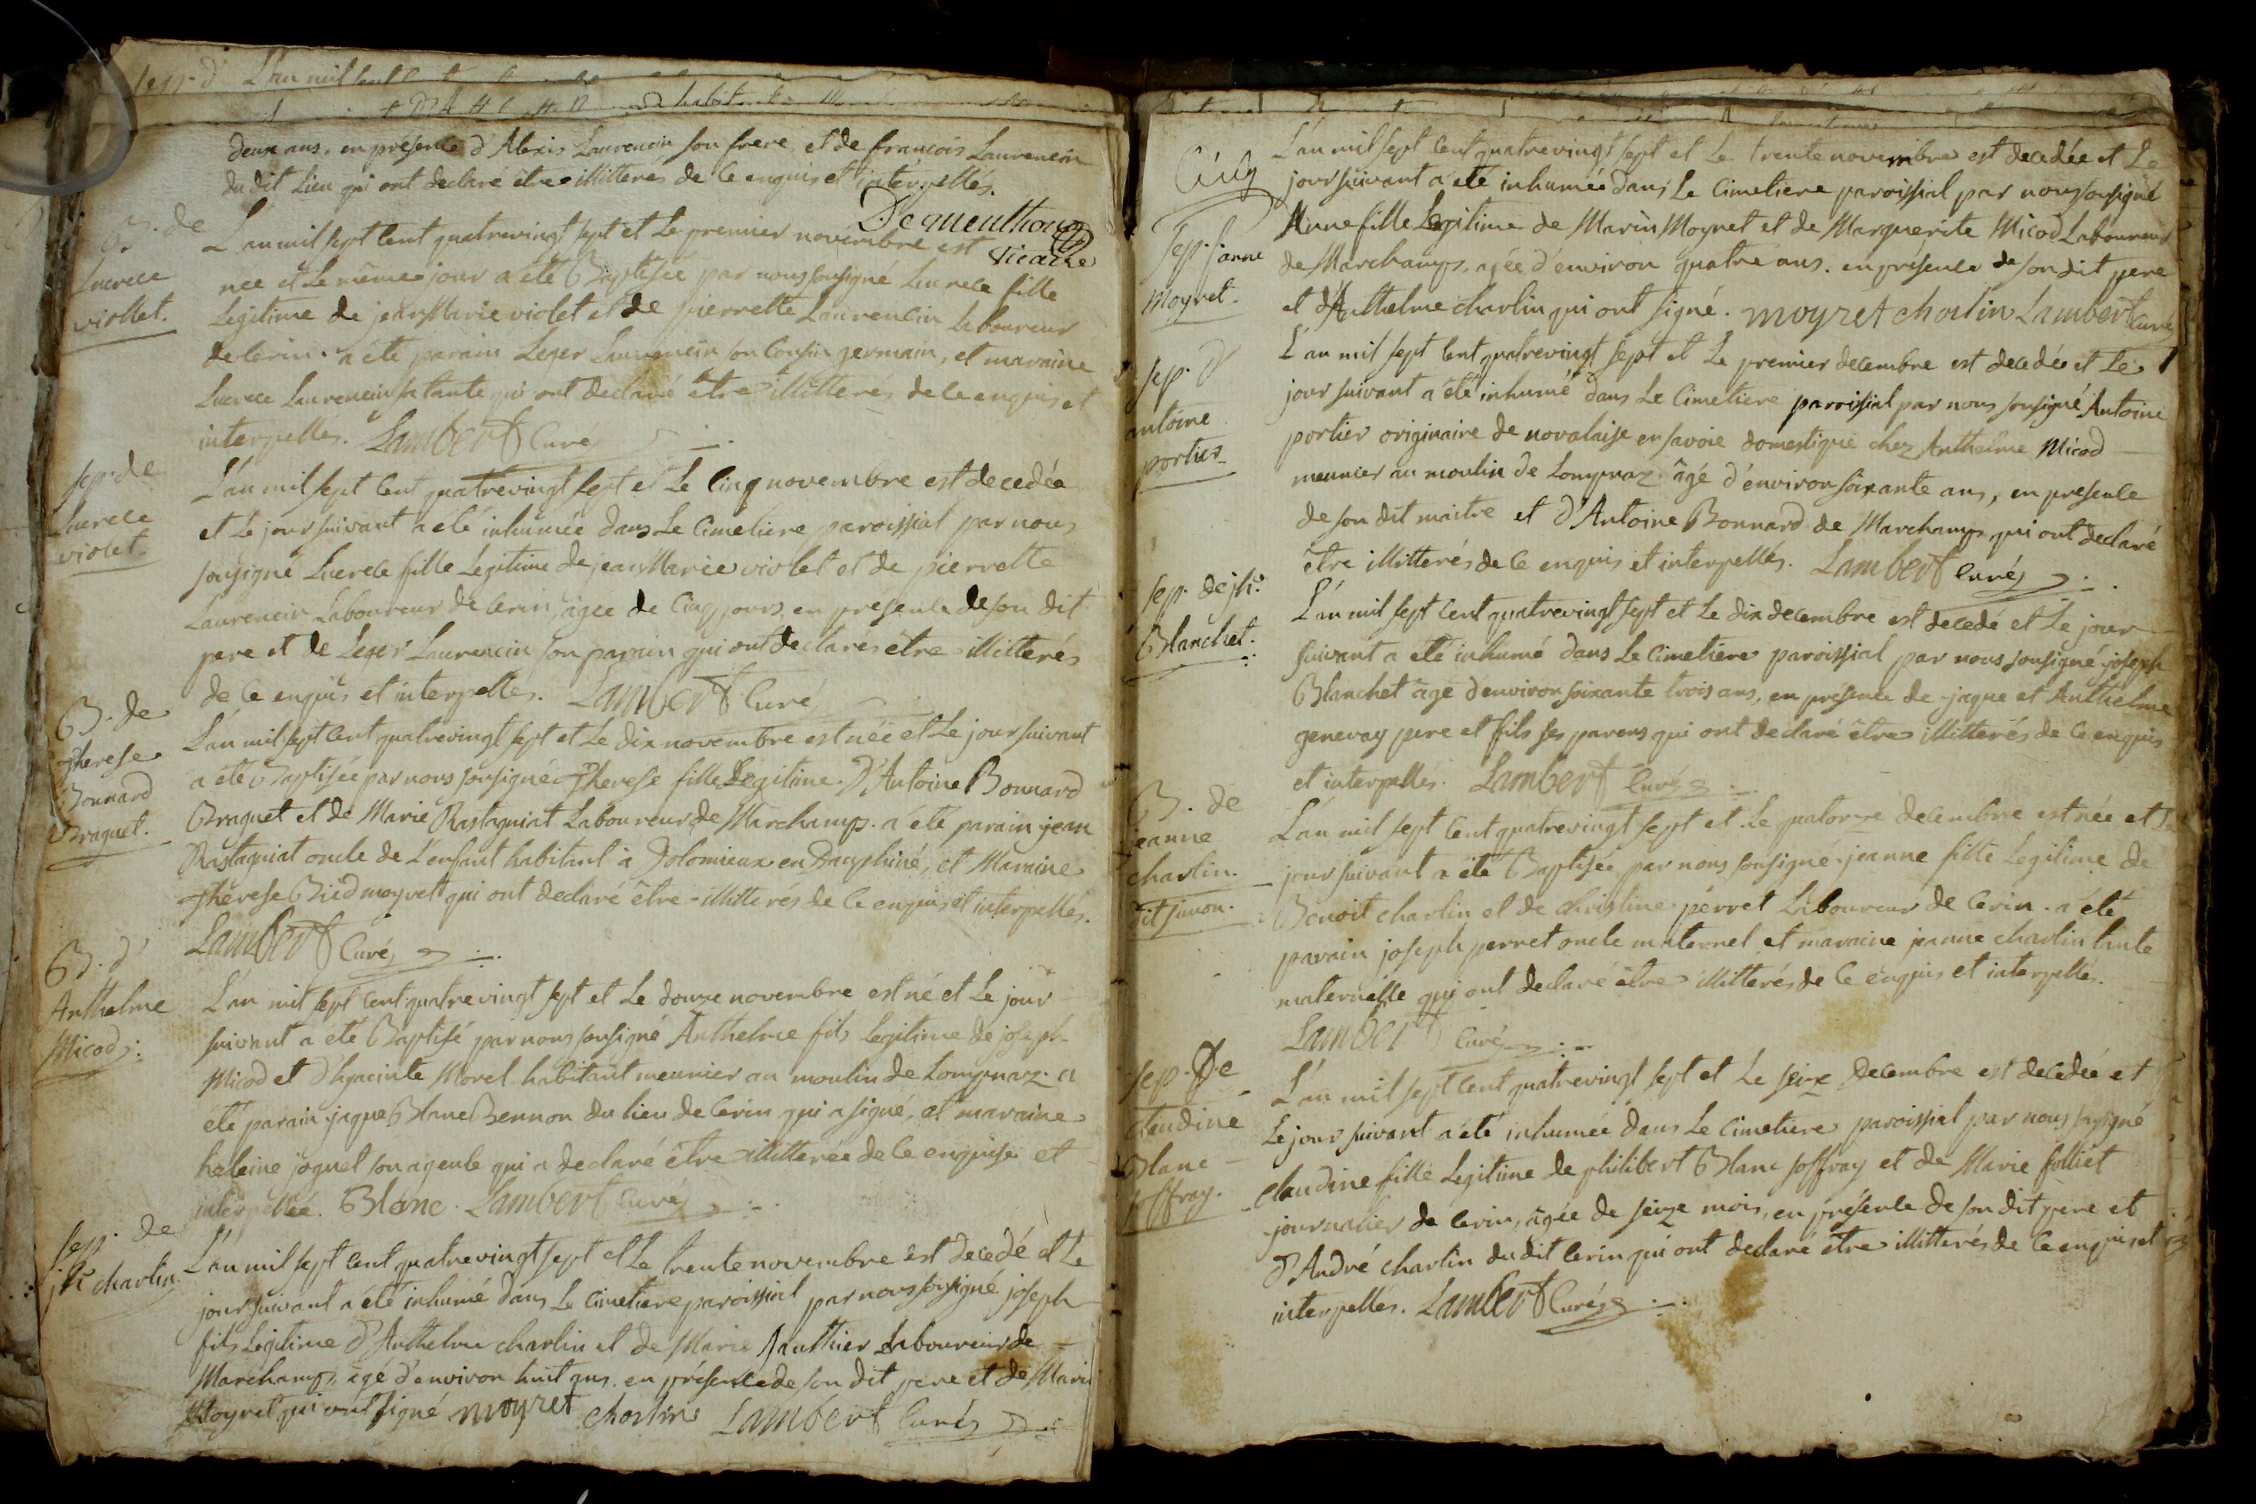 deux ans, en présence d'Alexis Laurencin son frere, et de francois Laurencin
du dit Lieu qui ont declaré être illitterés de ce enquis et interpellés.
Dequeulthon
vicaire
B. de
Lucrece
viollet.
L'an mil sept cent quatrevingt sept et Le premier novembre est
née et Le même jour a été Baptisée par nous sousigné Lucrece fille
Legitime de jean Marie violet et de pierrette Laurencin Laboureur
de Cerin. a été parain Leger Laurencin son Cousin germain, et maraine
Lucrece Laurencin sa tante qui ont declaré être illitterés de ce enquis et
interpellés. Lambert Curé
sep. de
Lucrece
violet.
L'an mil sept cent quatrevingt sept et Le Cinq novembre est decedée
et Le jour suivant a été inhumée dans Le Cimetiere paroissial par nous
sousigné Lucrece fille Légitime de jean Marie violet et de pierrette
Laurencin Laboureur de Cerin, agée de Cinq jours, en presence de son dit
pere et de Leger Laurencin son parain qui ont declarés être illitterés
de ce enquis et interpellés. Lambert Curé
B. de
Therese
Bonnard
Braquet.
L'an mil sept cent quatrevingt sept et Le dix novembre est née et Le jour suivant
a été Baptisée par nous sousigné Therese fille Légitime d'Antoine Bonnard
Braquet et de Marie Rastagniat Laboureur de Marchamps. a été parain jean
Rastagniat oncle de L'enfant habitant à Dolomieux en Dauphiné, et Maraine
Thérese Bied moyret qui ont declaré être illitterés de ce enquis et interpellés.
Lambert Curé
B. d'
Anthelme
Micod:
L'an mil sept cent quatrevingt sept et Le douze novembre est né et Le jour
suivant a été Baptisé par nous sousigné Anthelme fils Legitime de joseph
Micod et d'hyacinte Morel habitant meunier au moulin de Lompnaz. a
été parain jaque Blanc Bennon du lieu de Cerin qui a signé, et maraine
heleine joguet son ageule qui a declaré être illitterée de ce enquise et
interpellée. Blanc. Lambert Curé
sep. de
jh. charlin
L'an mil sept cent quatrevingt sept et Le trente novembre est decedé et Le
jour suivant a été inhumé dans Le Cimetiere paroissial par nous sousigné joseph
fils Legitime d'Anthelme charlin et de Marie Gauthier Laboureur de
Marchamps, agé d'environ huit ans. en présence de son dit pere et de Marin
Moyret qui ont signé moyret charlin Lambert Curé
Sep. d'anne
Moyret.
L'an mil sept Cent quatrevingt sept et Le trente novembre est decedée et Le
jour suivant a été inhumée dans Le Cimetiere paroissial par nous sousigné
Anne fille Legitime de Marin Moyret et de Marguerite Micod Laboureur
de Marchamps, agée d'environ quatre ans. en presence de son dit pere
et d'Anthelme charlin qui ont signé. moyret charlin Lambert Curé
sep. d'
antoine
portier
L'an mil sept Cent quatrevingt sept et Le premier decembre est decedé et Le
jour suivant a été inhumé dans Le Cimetiere paroissial par nous sousigné Antoine
portier originaire de novalaise en savoie domestique chez Anthelme Micod
meunier au moulin de Lompnaz. âgé d'environ soixante ans, en presence
de son dit maitre et d'Antoine Bonnard de Marchamps, qui ont declaré
être illitterés de ce enquis et interpellés. Lambert Curé
sep. de jh.
Blanchet.
L'an mil sept Cent quatrevingt sept et Le dix decembre est decedé et Le jour
suivant a été inhumé dans Le Cimetiere paroissial par nous sousigné joseph
Blanchet âgé d'environ soixante trois ans, en présence de jaque et Anthelme
genevay pere et fils ses parens qui ont declaré être illitterés de ce enquis
et interpellés. Lambert Curé
B. de
jeanne
charlin.
dit junon.
L'an mil sept Cent quatrevingt sept et Le quatorze decembre est née et Le
jour suivant a été Baptisée par nous sousigné jeanne fille Legitime de
Benoit charlin et de christine pérret Laboureur de Cerin. a été
parain joseph perret oncle maternel et maraine jeanne charlin tante
maternelle qui ont declaré être illitterés de ce enquis et interpellés.
Lambert Curé
sep. De
claudine
Blanc
soffray.
L'an mil sept Cent quatrevingt sept et Le seize decembre est decedée et
Le jour suivant a été inhumée dans Le Cimetiere paroissial par nous sousigné
Claudine fille Legitime de philibert Blanc soffray et de Marie folliet
journalier de Cerin, âgée de seize mois, en présence de son dit pere et
d'André charlin du dit Cerin qui ont declaré être illitterés de ce enquis et
interpellés. Lambert Curé